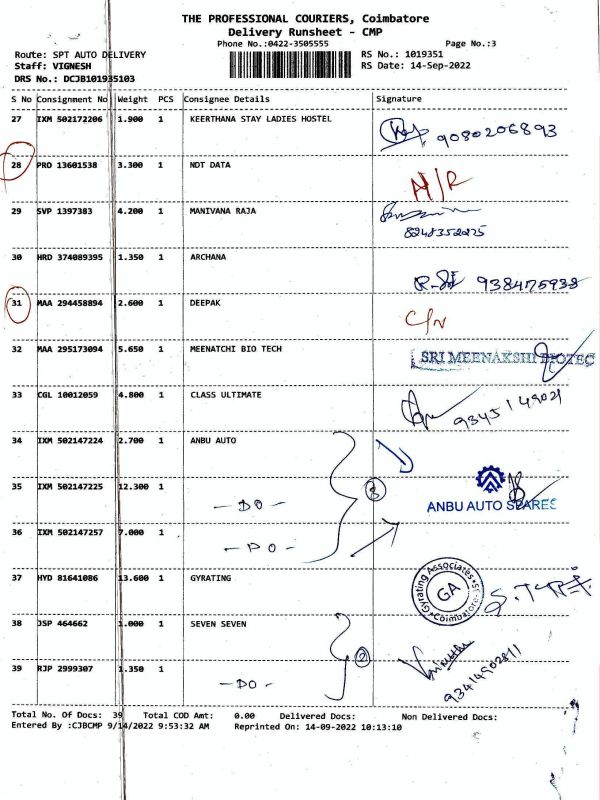 THE PROFESSIONAL COURIERS, Coimbatore
Delivery Runsheet - CMP
Phone No.:0422-3505555 Page No.:3
Route: SPT AUTO DELIVERY RS No.: 1019351
Staff: VIGNESH RS Date: 14-Sep-2022
DRS No.: DCJB101935103
S No Consignment No Weight PCS Consignee Details Signature
27 IXM 502172206 1.900 1 KEERTHANA STAY LADIES HOSTEL 9080206893
28 PRO 13601538 3.300 1 NDT DATA N/R
29 SVP 1397383 4.200 1 MANIVANA RAJA
8248352275
30 HRD 374089395 1.350 1 ARCHANA 938475938
31 MAA 294458894 2.600 1 DEEPAK C/N
32 MAA 295173094 5.650 1 MEENATCHI BIO TECH SRI MEENAKSHI BIOTEC
33 CGL 10012059 4.800 1 CLASS ULTIMATE 9345149021
34 IXM 502147224 2.700 1 ANBU AUTO
35 IXM 502147225 12.300 1 - DO - 3 ANBU AUTO SPARES
36 IXM 502147257 7.000 1 - DO -
37 HYD 81641086 13.600 1 GYRATING Gyrating Associates Coimbatore GA
38 JSP 464662 1.000 1 SEVEN SEVEN
39 RJP 2999307 1.350 1 - DO - 2 93414902811
Total No. Of Docs: 39 Total COD Amt: 0.00 Delivered Docs: Non Delivered Docs:
Entered By :CJBCMP 9/14/2022 9:53:32 AM Reprinted On: 14-09-2022 10:13:10